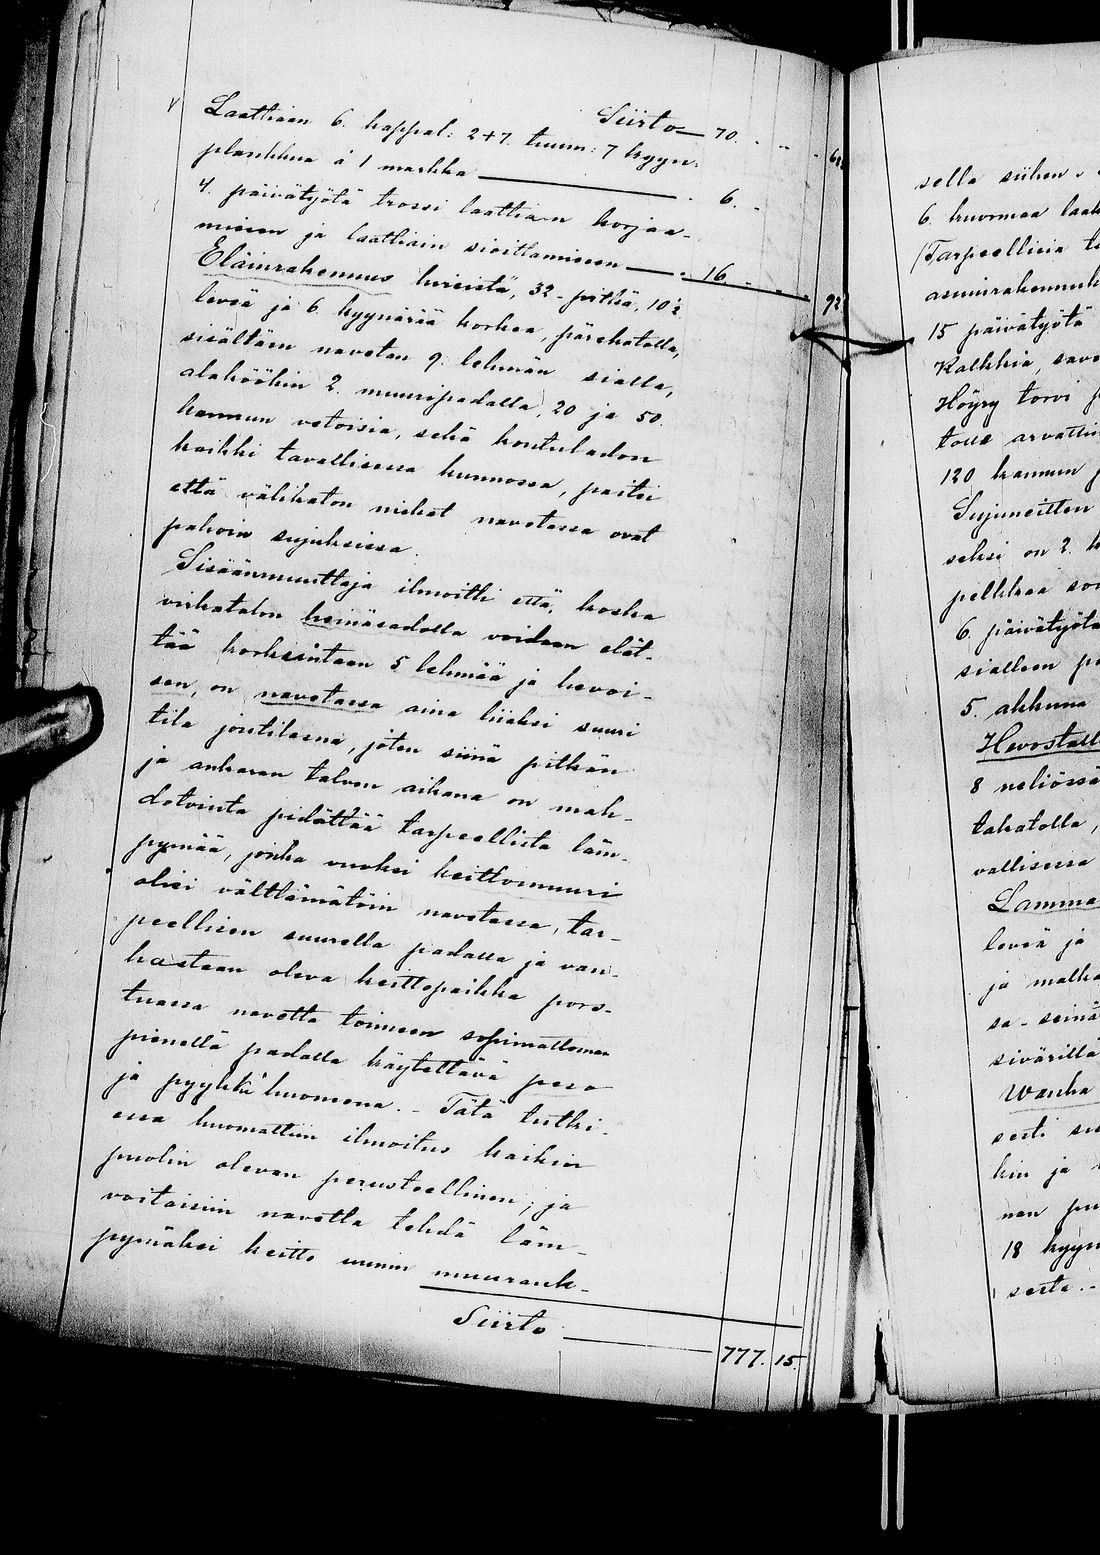 Siirto — 70. 
Laattiaan 6. kappal: 2+7. tuum: 7 kyyn:
plankkua á 1 markka — 6. -
4. päivätyötä trossi laattian korjaa-
miseen ja laattiain sioittamiseen — 16 - 92
Eläinrakennus hirsistä, 32- pitkä, 10½
leveä ja 6 kyynärää korkea, pärekatolla,
sisältäin navetan 9. lehmän sialla,
alaköökin 2. muuripadalla, 20 ja 50.
kannun vetoisia, sekä hontuladon
kaikki tavallisessa kunnossa, paitsi
että välikaton niskat navetassa ovat
pahoin sujuksissa.
Sisäänmuuttaja ilmoitti että, koska
virkatalon heinäsadolla voidaan elät-
tää korkeintaan 5 lehmää ja hevoi-
sen, on navetassa aina liiaksi suuri
tila joutilasna, joten siinä pitkän
ja ankaran talven aikana on mah-
dotointa pidättää tarpeellista läm-
pymää, jonka vuoksi keittomuuri
olisi välttämätöin navetassa, tar-
peellisen suurella padalla ja van-
hastaan oleva keittopaikka pors-
tuassa navetta toimeen sopimattoman
pienellä padalla käytettävä pesu
ja pyykki huoneena. - Tätä tutki-
essa huomattiin ilmoitus kaikin
puolin olevan perusteellinen, ja
voitaisiin navetta tehdä läm-
pymäksi keitto uunin muurauk-
Siirto — 777. 15.
sella siihen
6. kuormaa
Tarpeellisia
asuinrakennuk
15 päivätyötä
Kalkkia, save
Höyry torvi p
arvattiin
120 kannun
Sujuneitten
seksi on 2. k
pelkkaa
6. päivätyötä
sialleen
5. akkuna
Hevostall
8 neliössä
takatolla,
vallisessa
Lamma
leveä ja
ja malka
sa- seinä
sivärillä
Wanha
sesti
kin ja
nan
18 kyyn
sesti.-